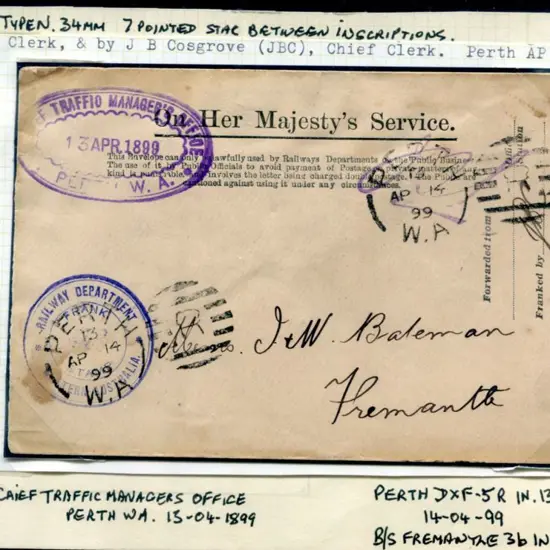 TYPE N. 34MM 7 POINTED STAR BETWEEN INSCRIPTIONS.
Clerk, & by J B Cosgrove (JBC), Chief Clerk. Perth AP
On Her Majesty's Service.
TRAFFIC MANAGER'S OFFICE
13 APR 1899
PERTH W.A.
This Envelope can only lawfully used by Railways Departments on the Public Business
The use of it Public Officials to avoid payment of Postage private matter
kind is punishable. involves the letter being charged double postage. The Public are
cautioned against using it under any circumstances.
AP 14
99
W.A
Forwarded from
Station
Franked by
RAILWAY DEPARTMENT
FRANK
WESTERN AUSTRALIA.
PERTH
13
AP 14
99
W.A
Messrs. J & W. Bateman
Fremantle
CHIEF TRAFFIC MANAGERS OFFICE
PERTH WA. 13-04-1899
PERTH DXF-5R IN. 13
14-04-99
B/S FREMANTLE 3b IN